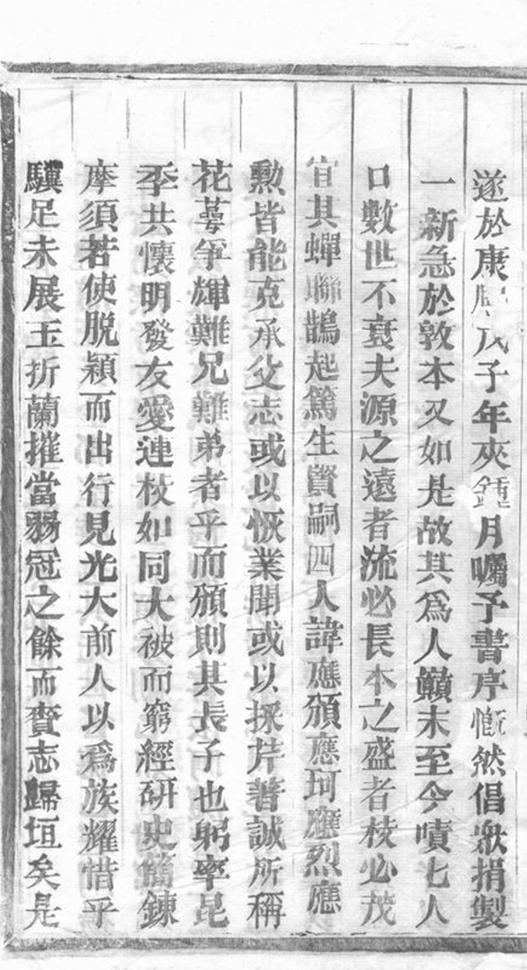 遂於康熙戊子年夾鍾月囑予書序慨然倡眾捐製
一新急於敦本又如是故其為人巔末至今嘖七人
口數世不衰夫源之遠者流必長本之盛者枝必茂
宜其蟬聯鵲起篤生賢嗣四人諱應頒應珂應烈應
勲皆能克承父志或以恢業聞或以採芹著誠所稱
花萼爭輝難兄難弟者乎而頒則其長子也躬率昆
季共懷明發友愛連枝如同大被而窮經研史簡鍊
摩須若使脫穎而出行見光大前人以為族耀惜乎
驥足未展玉折蘭摧當弱冠之餘而賫志歸垣矣是